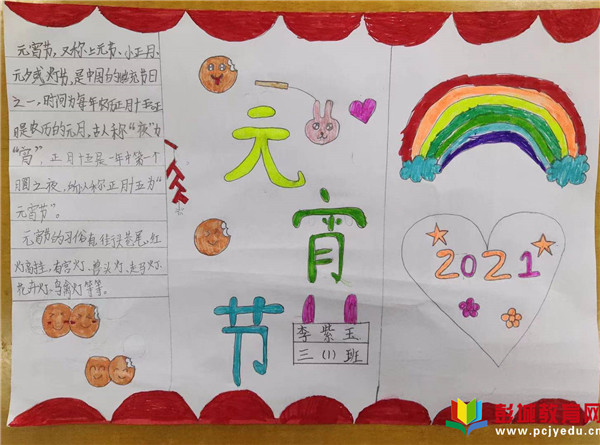 元宵节，又称上元节、小正月、
元夕或灯节，是中国的传统节日
之一，时间为每年农历正月十五正
是农历的元月，古人称"夜"为
"宵"，正月十五是一年中第一个
月圆之夜，所以称正月十五为"
元宵节"。
元宵节的习俗有 红
灯高挂，有宫灯、兽头灯、走马灯、
花卉灯、鸟禽灯等等。
元
宵
节
李紫玉
三(1)班
2021
彭城教育网
www.pcjyedu.cn